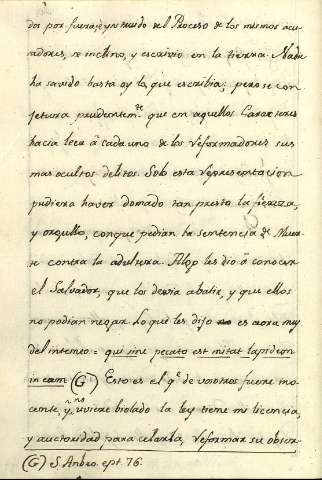 dos por fuera, è ynstruido del Proceso de los mismos acu-
sadores, se inclino, y escrivio en la tierra. Nadie
ha savido hasta oy lo que escribia; pero se con
jetura prudentem.te que en aquellos Caracteres
hacia leer à cada uno de los reformadores sus
mas ocultos delitos. Solo esta representacion
pudiera haver domado tan presto la fiereza,
y orgullo, conque pedian la sentencia de Muer-
te contra la adultera. les dio à conocer
el Salvador, que los devia abatir, y que ellos
no podian negar. Lo que les dijo es aora muy
del intento = qui sine pecato est mitat lapidem
in eam (G) Esto es el q.e de vosotros fuere ino
cente, y no uviere biolado la ley tiene mi licencia,
y auctoridad para celarla, reformar su obser-
(G) S. Ambro. ept. 76.